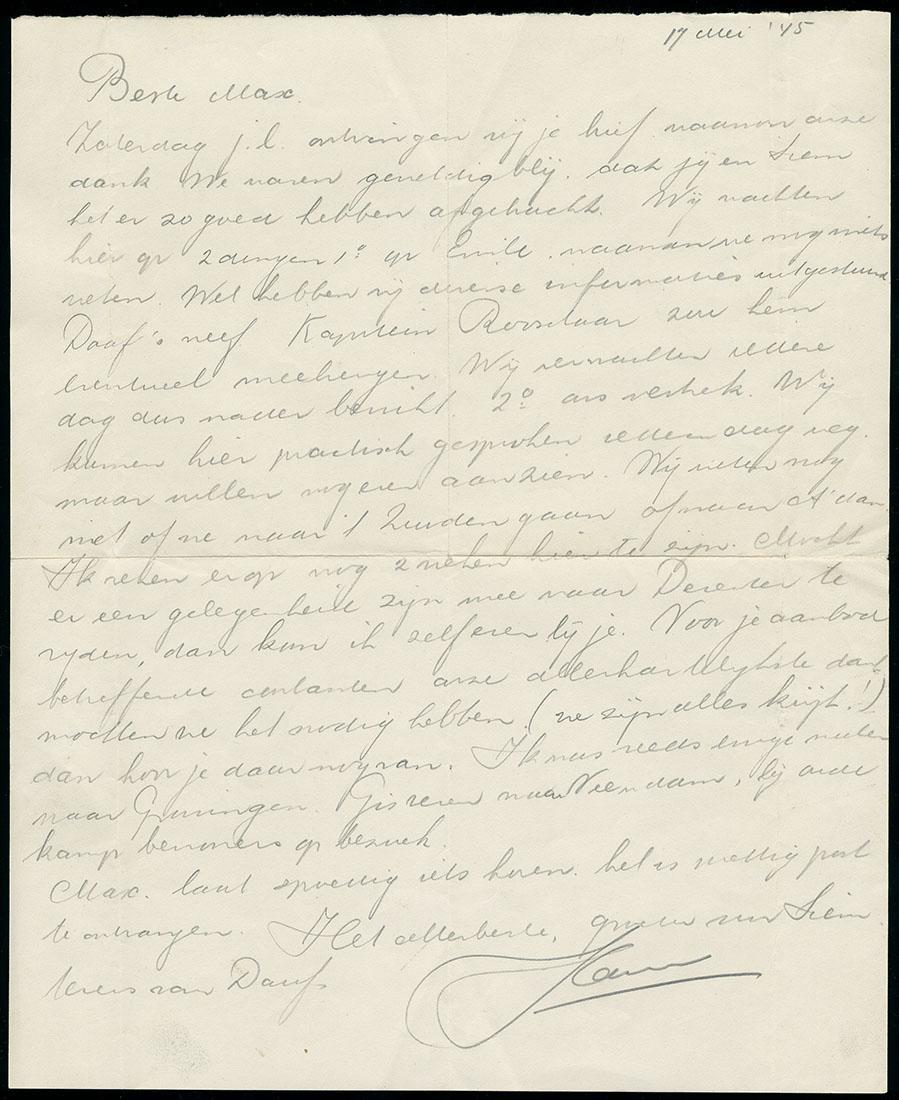 17 Mei '45
Beste Max.
Zaterdag j.l. ontvingen wij je brief waarvoor onze
dank We waren geweldig blij. dat jij en Siem
het er zo goed hebben afgebracht. Wij wachten
hier op 2 dingen 1º op Emile. waarvan we nog niets
weten. Wel hebben wij diverse informaties uitgestuurd
Daaf's neef Kapitein Rooselaar zou hem
eventueel meebrengen. Wij verwachten iedere
dag dus nader bericht. 2º ons vertrek. Wij
kunnen hier practisch gesproken iederen dag weg.
maar willen nog even aanzien. Wij weten nog
niet of we naar 't Zuiden gaan of naar A'dam.
Ik reken erop nog 2 weken hier te zijn. Mocht
er een gelegenheid zijn mee naar Deventer te
rijden, dan kom ik zelf even bij je. Voor je aanbod
betreffende contanten onze allerhartelijkste dank
mochten we het nodig hebben (we zijn alles kwijt!)
dan hoor je daar nog van. Ik was reeds enige malen
naar Groningen. Gisteren naar Veendam, bij oude
kamp bewoners op bezoek.
Max. laat spoedig iets horen. het is prettig post
te ontvangen. Het allerbeste, groeten aan Siem
tevens van Daaf.